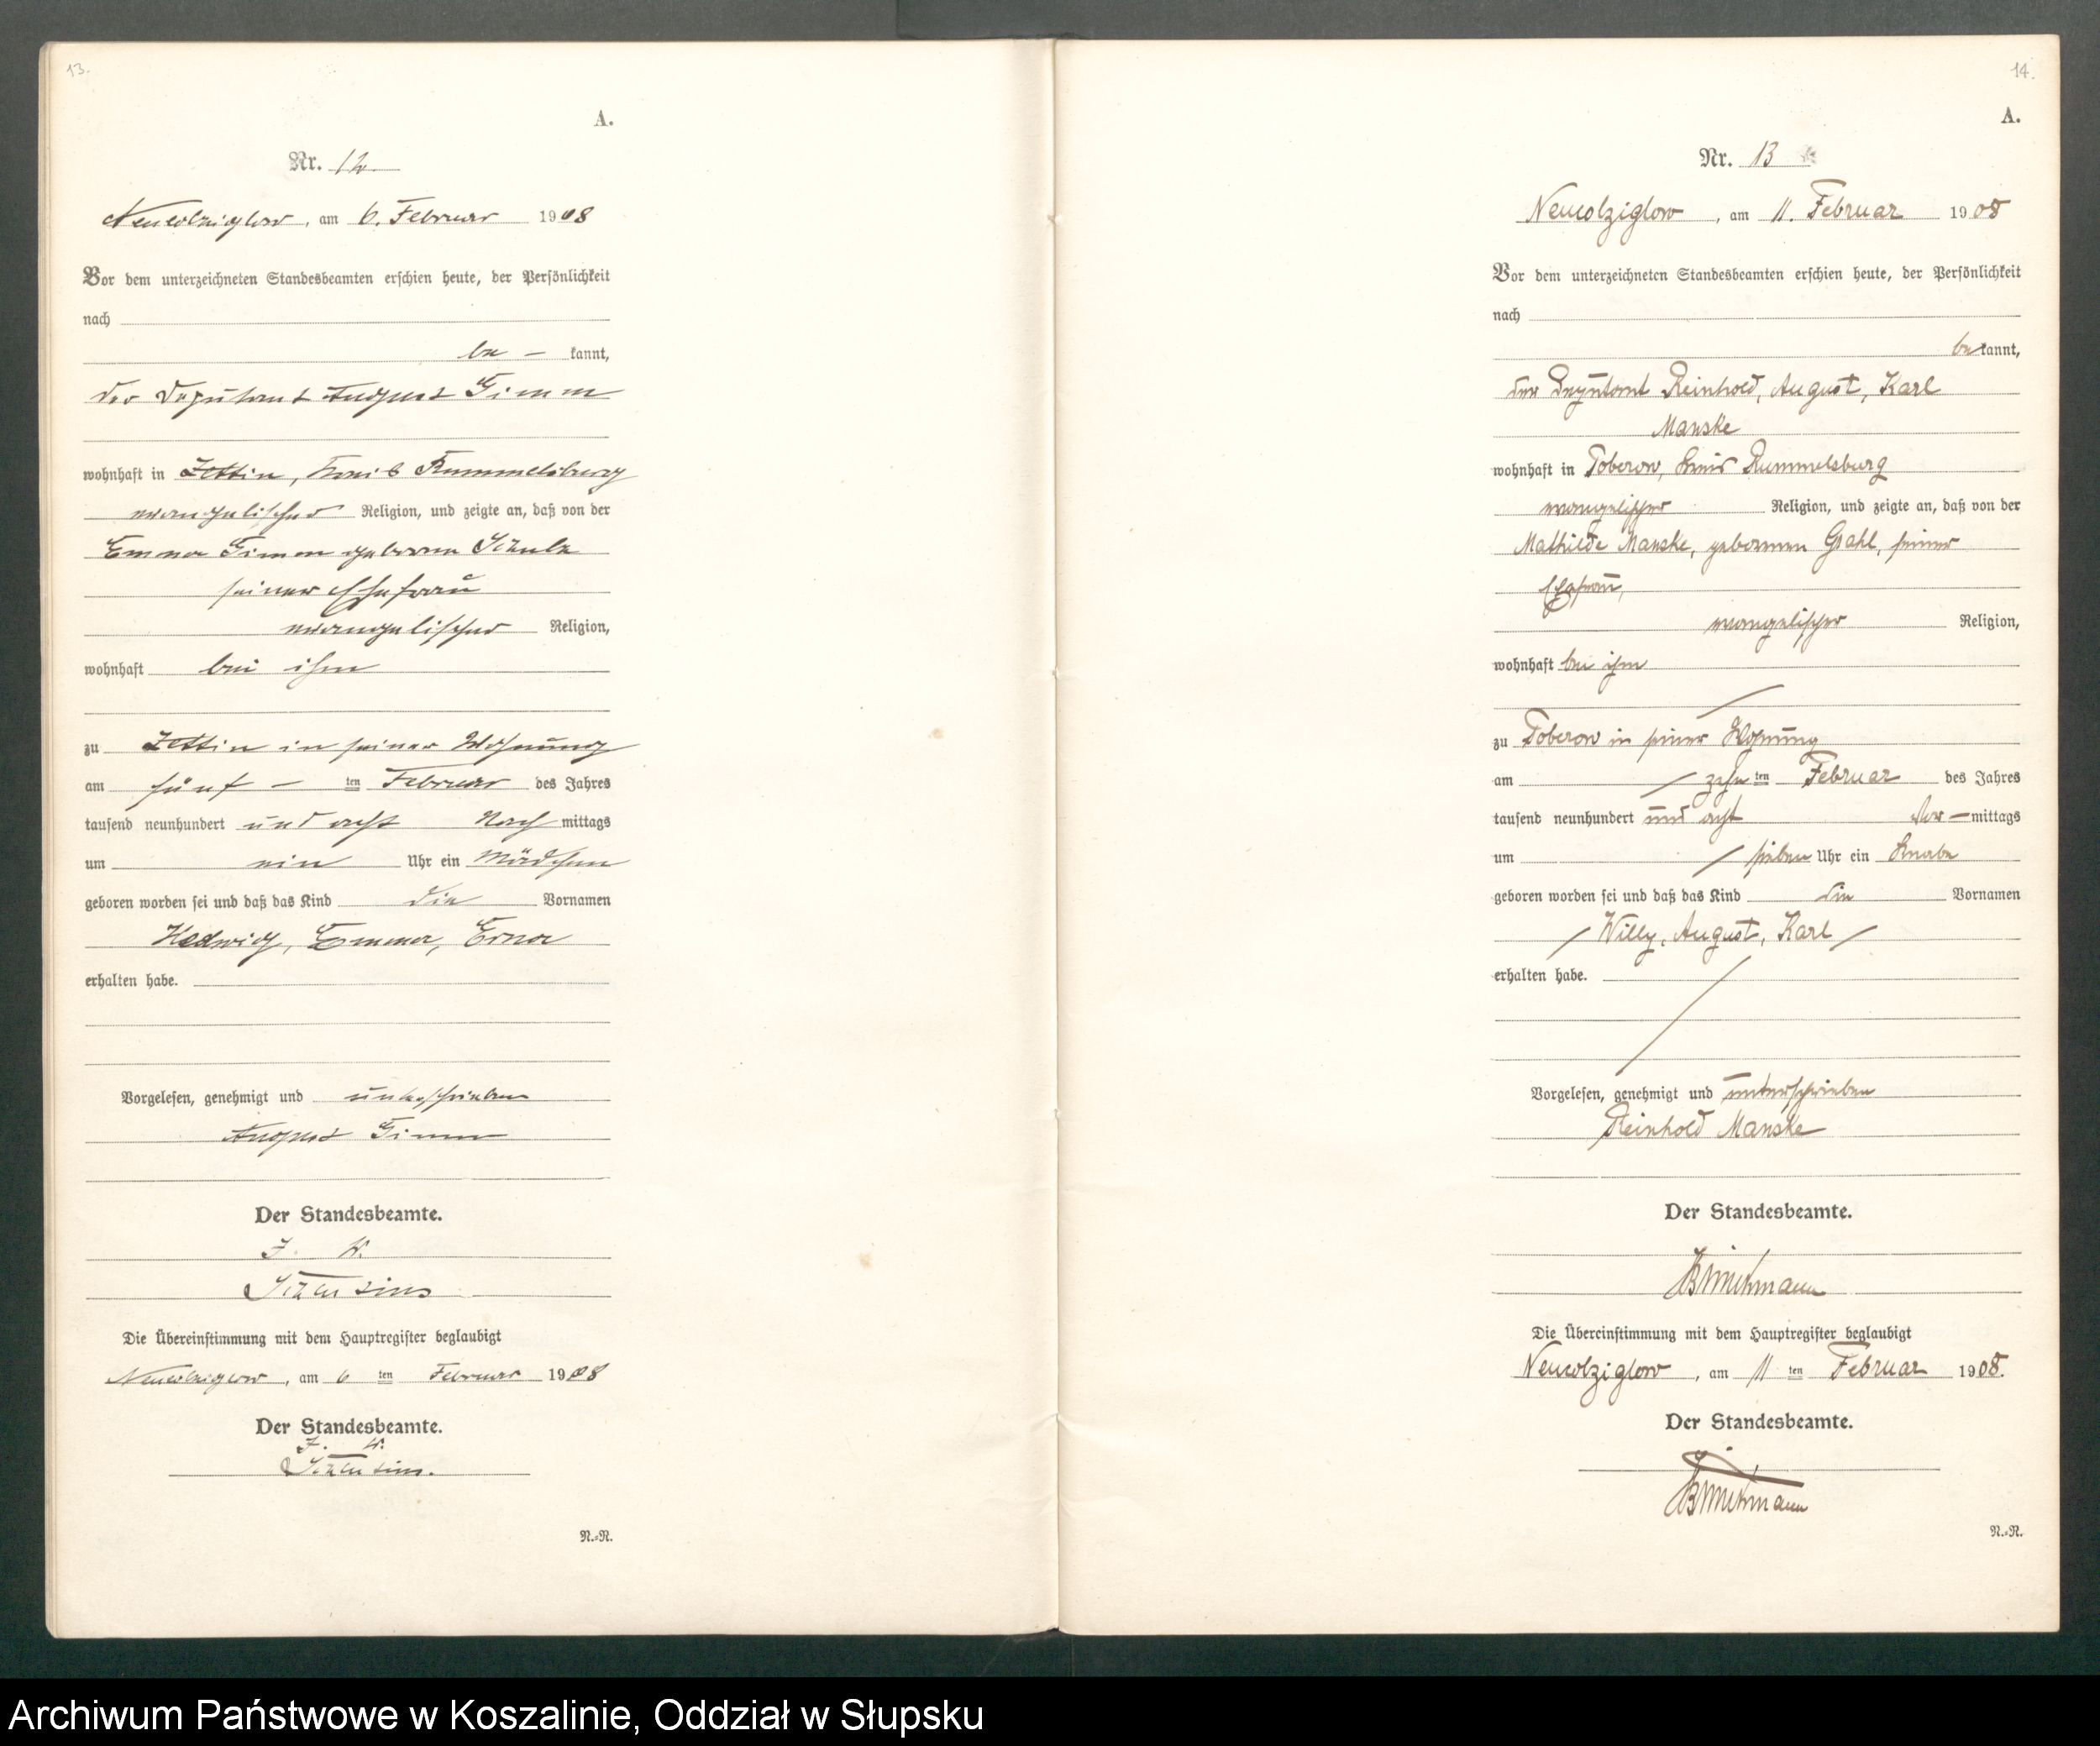 13.
A.
Nr. 12.
Neukolziglow, am 6. Februar 1908
Vor dem unterzeichneten Standesbeamten erschien heute, der Persönlichkeit
nach
be – kannt,
der Deputant August Timm
wohnhaft in Zettin, Kreis Rummelsburg
evangelischer Religion, und zeigte an, daß von der
Emma Timm geborene Schulz
seiner Ehefrau
evangelischer Religion,
wohnhaft bei ihm
zu Zettin in seiner Wohnung
am fünf – ten Februar des Jahres
tausend neunhundert und acht Nach mittags
um ein Uhr ein Mädchen
geboren worden sei und daß das Kind die Vornamen
Hedwig, Emma, Erna
erhalten habe.
Vorgelesen, genehmigt und unterschrieben
August Timm
Der Standesbeamte.
J. V.
Die Übereinstimmung mit dem Hauptregister beglaubigt
Neukolziglow, am 6 ten Februar 1908
Der Standesbeamte.
J. V.
N.=N.
14.
A.
Nr. 13
Neukolziglow, am 11. Februar 1908
Vor dem unterzeichneten Standesbeamten erschien heute, der Persönlichkeit
nach
bekannt,
der Deputant Reinhold, August, Karl
Manske
wohnhaft in Toberow, Kreis Rummelsburg
evangelischer Religion, und zeigte an, daß von der
Mathilde Manske, geborenen Grahl, seiner
Ehefrau,
evangelischer Religion,
wohnhaft bei ihm
zu Toberow in seiner Wohnung
am zehn ten Februar des Jahres
tausend neunhundert und acht Vor – mittags
um sieben Uhr ein Knabe
geboren worden sei und daß das Kind die Vornamen
Willy, August, Karl
erhalten habe.
Vorgelesen, genehmigt und unterschrieben
Reinhold Manske
Der Standesbeamte.
Die Übereinstimmung mit dem Hauptregister beglaubigt
Neukolziglow, am 11 ten Februar 1908.
Der Standesbeamte.
N.=N.
Archiwum Państwowe w Koszalinie, Oddział w Słupsku